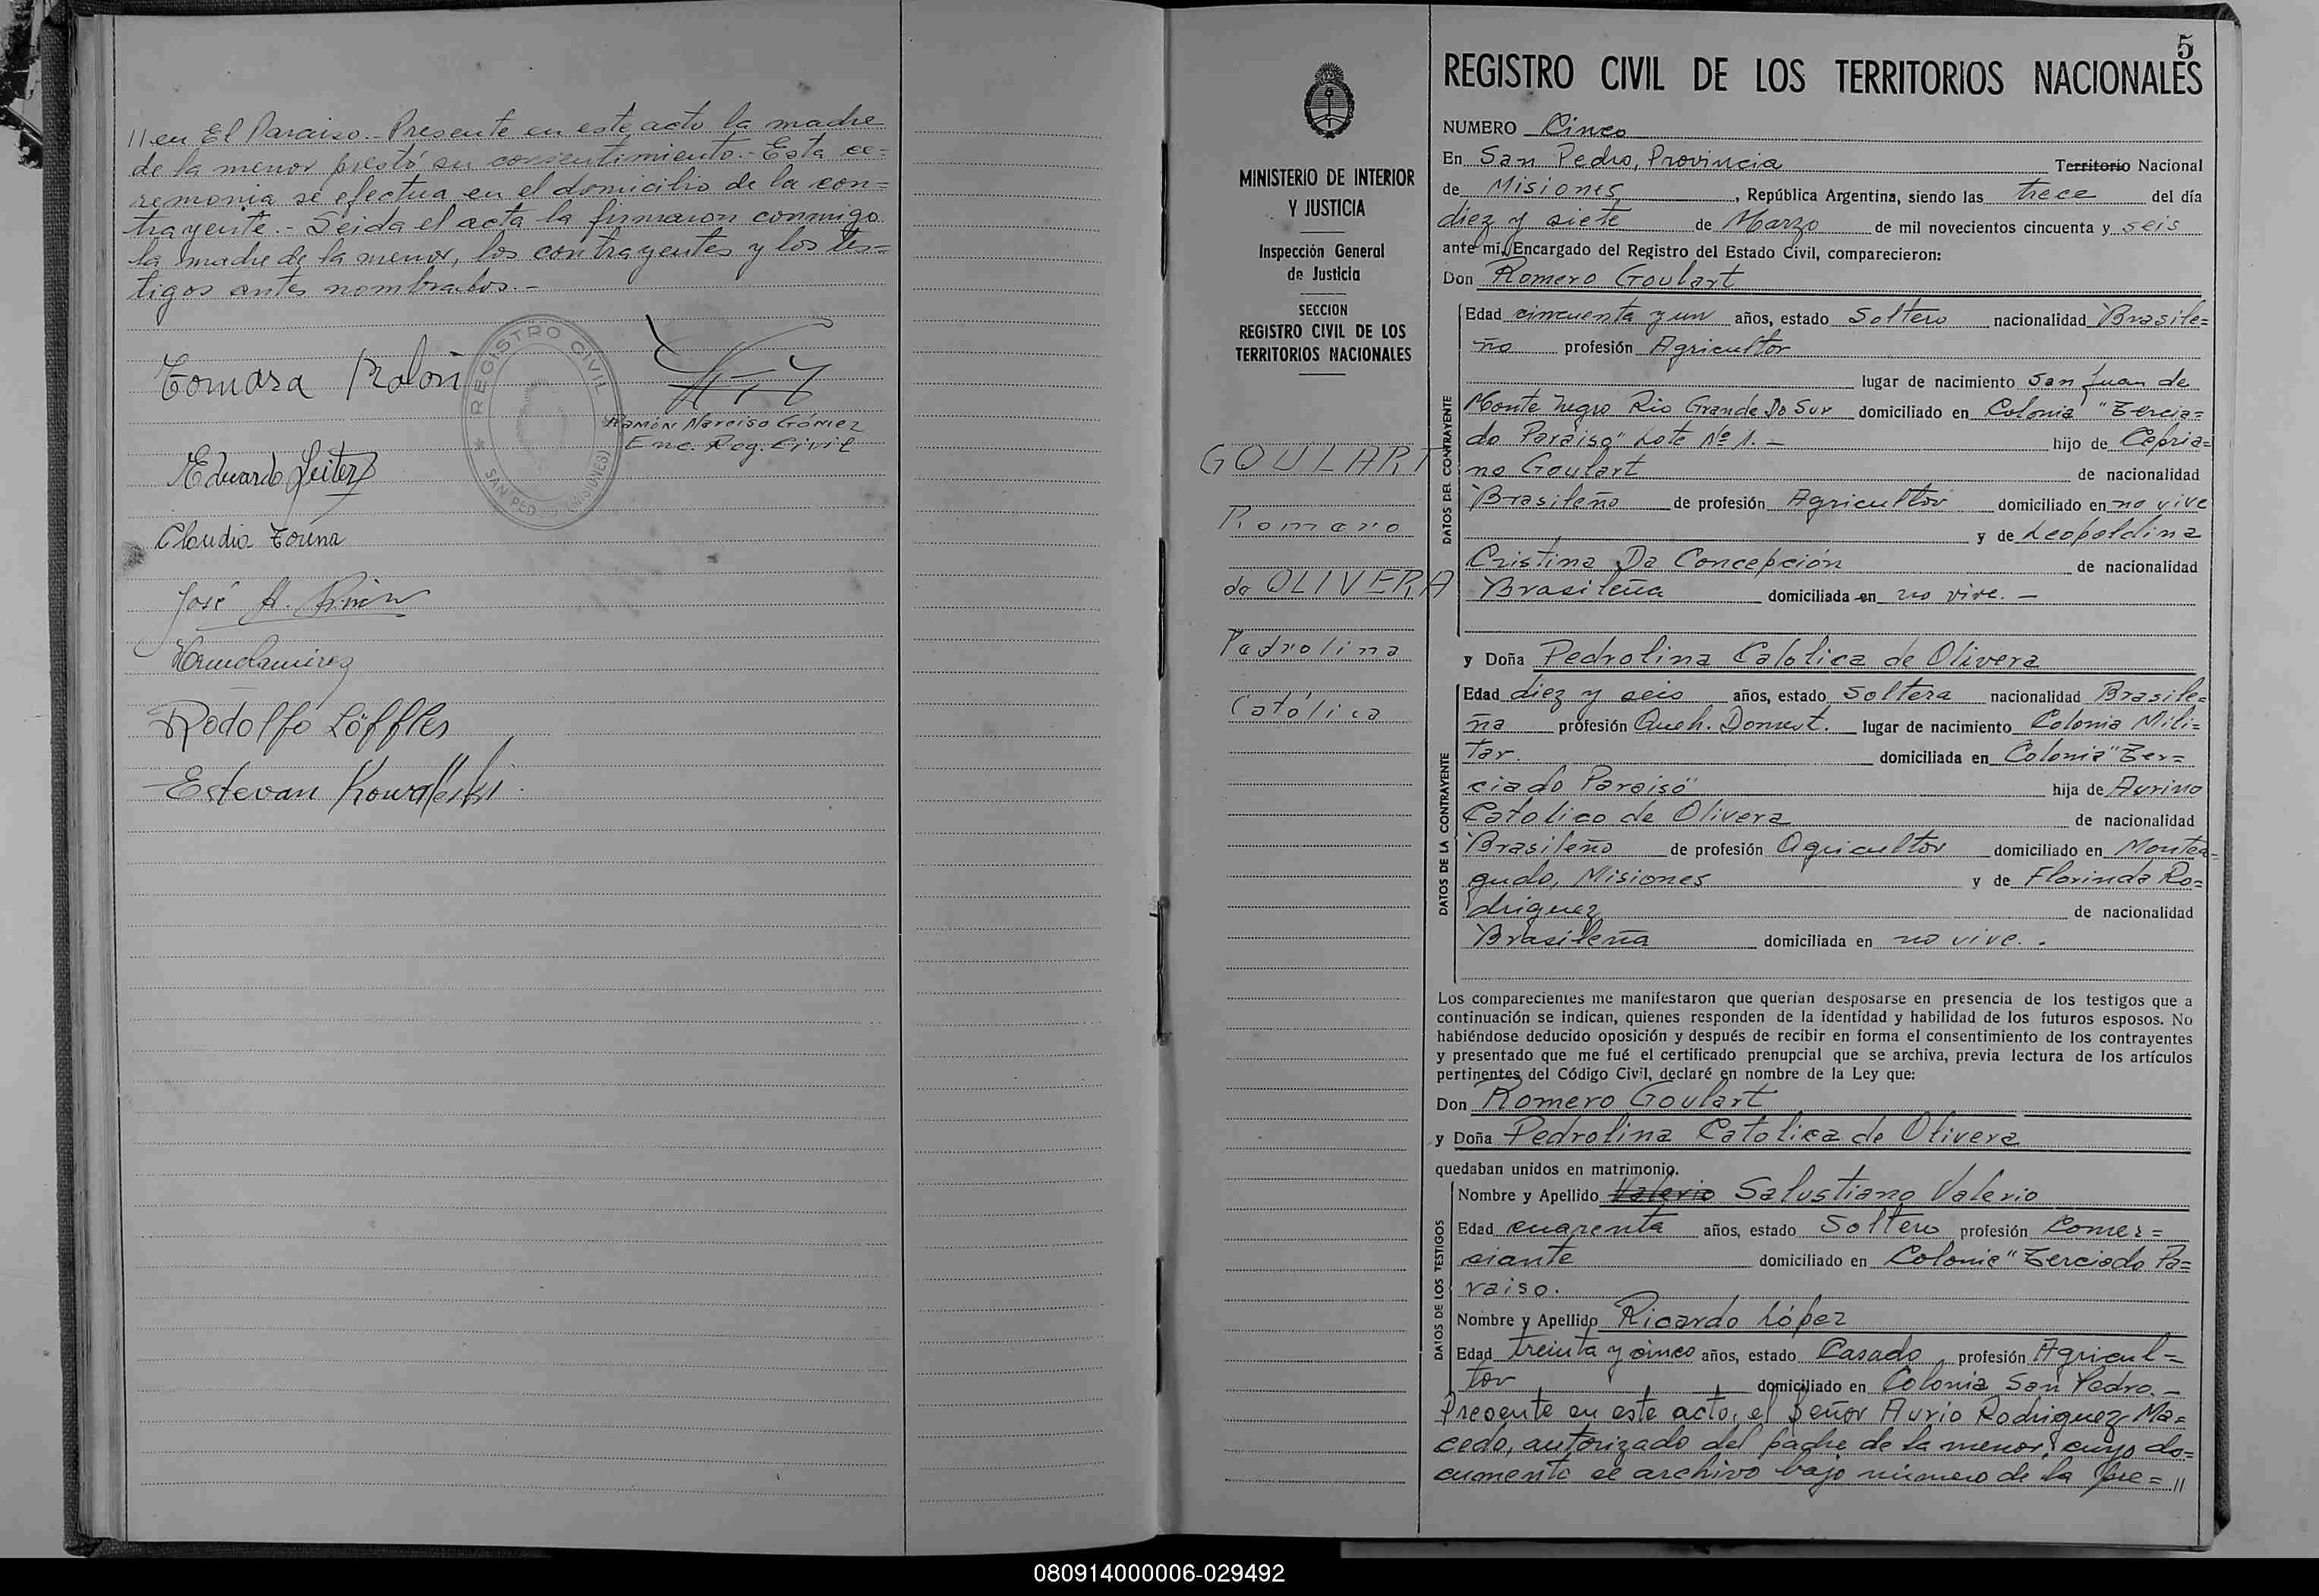 // en El Paraiso.- Presente en este acto la madre
de la menor prestó su consentimiento.- Esta ce=
remonia se efectua en el domicilio de la con=
trayente.- Leida el acta la firmaron conmigo
la madre de la menor, los contrayentes y los tes=
tigos antes nombrados.-
REGISTRO CIVIL
SAN PEDRO (MISIONES)
Ramón Narciso Gómez
Enc. Reg. Civil
Eduardo
Claudia
José A.
Rodolfo Löffler
Estevan Kowalski
5
REGISTRO CIVIL DE LOS TERRITORIOS NACIONALES
MINISTERIO DE INTERIOR
Y JUSTICIA
Inspección General
de Justicia
SECCION
REGISTRO CIVIL DE LOS
TERRITORIOS NACIONALES
GOULART
Romero
de OLIVERA
Pedrolina
Católica
NUMERO Cinco
En San Pedro, Provincia Territorio Nacional
de Misiones, República Argentina, siendo las trece del día
diez y siete de Marzo de mil novecientos cincuenta y seis
ante mí, Encargado del Registro del Estado Civil, comparecieron:
Don Romero Goulart
DATOS DEL CONTRAYENTE
Edad cincuenta y un años, estado Soltero nacionalidad Brasile=
ño profesión Agricultor
lugar de nacimiento San Juan de
Monte Negro Rio Grande Do Sur domiciliado en Colonia "Tercia=
do Paraiso" Lote Nº 1.- hijo de Cipria=
no Goulart de nacionalidad
Brasileño de profesión Agricultor domiciliado en no vive
y de Leopoldina
Cristina Da Concepción de nacionalidad
Brasileña domiciliada en no vive.-
y Doña Pedrolina Catolica de Olivera
DATOS DE LA CONTRAYENTE
Edad diez y seis años, estado Soltera nacionalidad Brasile=
ña profesión Queh. Domest. lugar de nacimiento Colonia Mili=
tar. domiciliada en Colonia "Ter=
ciado Paraiso" hija de Aurino
Catolico de Olivera de nacionalidad
Brasileño de profesión Agricultor domiciliado en Montea=
gudo, Misiones y de Florinda Ro=
driguez de nacionalidad
Brasileña domiciliada en no vive..
Los comparecientes me manifestaron que querían desposarse en presencia de los testigos que a
continuación se indican, quienes responden de la identidad y habilidad de los futuros esposos. No
habiéndose deducido oposición y después de recibir en forma el consentimiento de los contrayentes
y presentado que me fué el certificado prenupcial que se archiva, previa lectura de los artículos
pertinentes del Código Civil, declaré en nombre de la Ley que:
Don Romero Goulart
y Doña Pedrolina Catolica de Olivera
quedaban unidos en matrimonio.
DATOS DE LOS TESTIGOS
Nombre y Apellido Valerio Salustiano Valerio
Edad cuarenta años, estado Soltero profesión Comer=
ciante domiciliado en Colonia "Terciado Pa=
raiso.
Nombre y Apellido Ricardo López
Edad treinta y cinco años, estado Casado profesión Agricul=
tor domiciliado en Colonia San Pedro.-
Presente en este acto, el Señor Aurio Rodriguez Ma=
cedo, autorizado del padre de la menor, cuyo do=
cumento se archivo bajo número de la pre= //
080914000006-029492